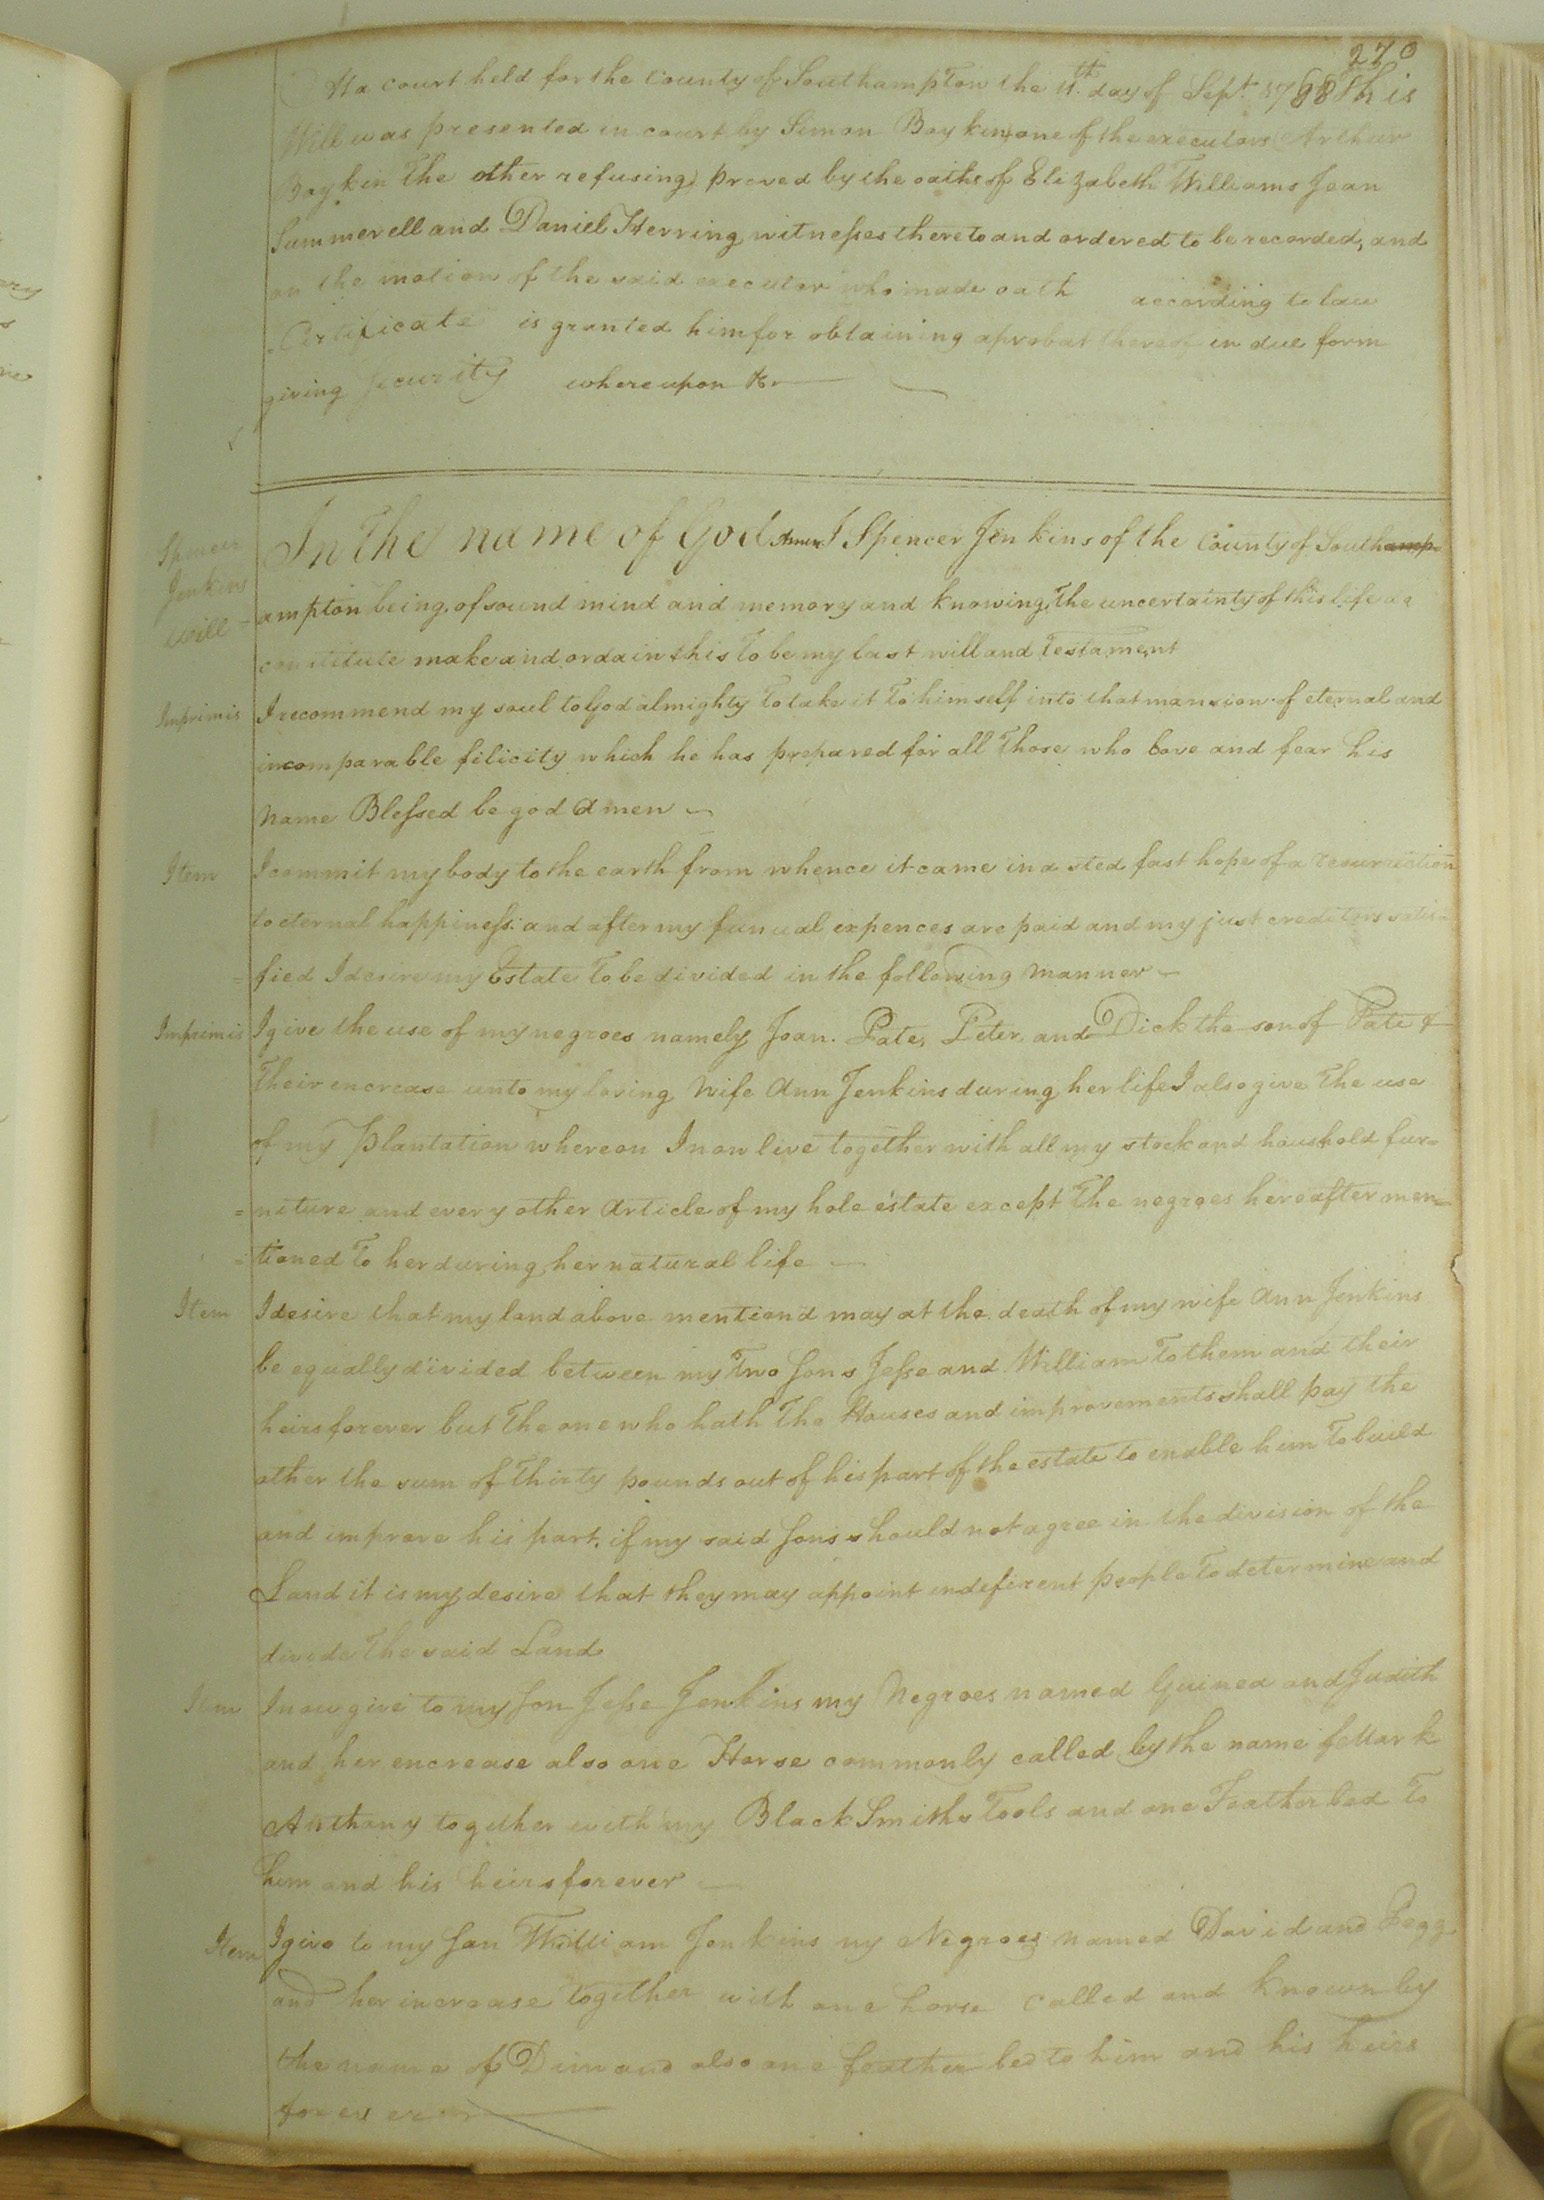 270
At a court held for the County of Southampton the 11th day of Sept. 1788 This
Will was presented in court by Simon Boykin one of the executors (Arthur
Boykin the other refusing) proved by the oaths of Elizabeth Williams Jean
Summerell and Daniel Herring witnesses thereto and ordered to be recorded, and
on the motion of the said executor who made oath according to law
Certificate is granted him for obtaining a probat thereof in due form
giving security whereupon &c
Spencer
Jenkins
Will
In The name of God Amen I Spencer Jenkins of the County of South
ampton being of sound mind and memory and knowing The uncertainty of this life do
constitute make and ordain this To be my last will and Testament
Imprimis I recommend my soul to God almighty To take it To himself into that mansion of eternal and
incomparable filicity which he has prepared for all Those who love and fear his
Name Blessed be god Amen
Item I commit my body to the earth from whence it came in a sted fast hope of a resurrection
to eternal happiness and after my funual expences are paid and my just creditors satis=
=fied I desire my Estate To be divided in the following manner
Imprimis I give the use of my negroes namely Joan. Pate, Peter and Dick the son of Pate &
Their encrease unto my loving Wife Ann Jenkins during her life I also give The use
of my Plantation whereon I now live together with all my stock and houshold fur=
=niture and every other Article of my hole estate except The negroes hereafter men=
=tioned To her during her natural life
Item I desire that my land above mentiond may at the death of my wife Ann Jenkins
be equally divided between my Two Sons Jesse and William To them and their
heirs forever but The one who hath The Houses and improvements shall pay the
other the sum of Thirty pounds out of his part of the estate to enable him To build
and improve his part, if my said Sons should not agree in the division of the
Land it is my desire that they may appoint indeferent people To determine and
divide The said Land
Item I now give to my Son Jesse Jenkins my Negroes named Guinea and Judith
and her encrease also one Horse commonly called by the name of Mark
Anthony together with my Black Smiths Tools and one Feather bed To
him and his heirs forever
Item I give to my Son William Jenkins my Negroes named David and Pegg
and her increase together with one horse called and known by
the name of and also one feather bed to him and his heirs
forever